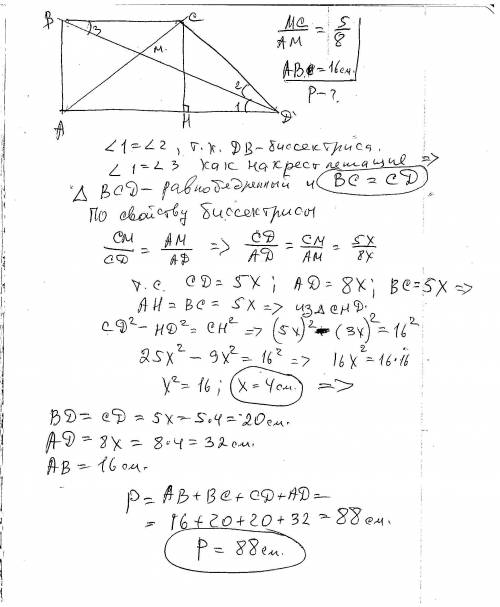 B
C
3
M.
2
1
A
H
D
MC/AM = 5/8
AB = 16 см.
P - ?
∠1=∠2, т.к. DB - биссектриса.
∠1=∠3 как накрест лежащие =>
△ BCD - равнобедренный и BC = CD
По свойству биссектрисы
CM/CD = AM/AD => CD/AD = CM/AM = 5x/8x
т.е. CD = 5x; AD = 8x; BC = 5x =>
AH = BC = 5x => из △ CHD.
CD² - HD² = CH² => (5x)² - (3x)² = 16²
25x² - 9x² = 16² => 16x² = 16·16
x² = 16; x = 4 см. =>
BD = CD = 5x = 5·4 = 20 см.
AD = 8x = 8·4 = 32 см.
AB = 16 см.
P = AB + BC + CD + AD =
= 16 + 20 + 20 + 32 = 88 см.
P = 88 см.